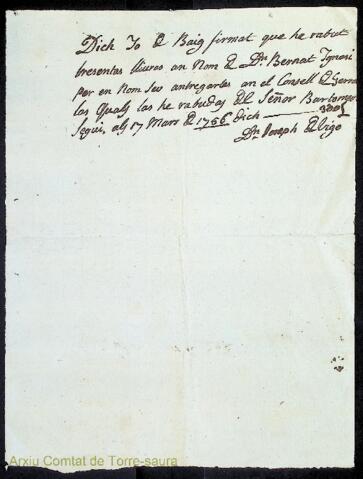 Dich Jo Baig firmat que he rabut
trescentas lliuras an Nom de Dn. Bernat Ignasi
per en Nom Seu antregarlas an el Consell
las Quals las he rabudas del Señor Bartomeu
Seguí, als 17 Mars de 1756 Dich
Dn. Joseph de Vigo
Arxiu Comtat de Torre-saura